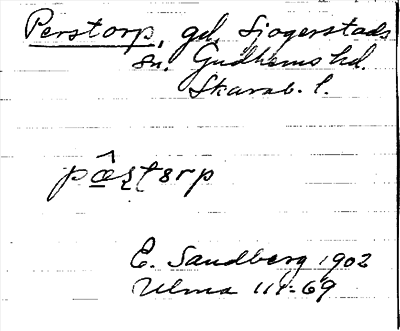 Perstorp, gd, Sjogerstads
sn. Gudhems hd.
Skarab. l.
pæ̂ʂʈɒrp
E. Sandberg 1902
Ulma 111:69